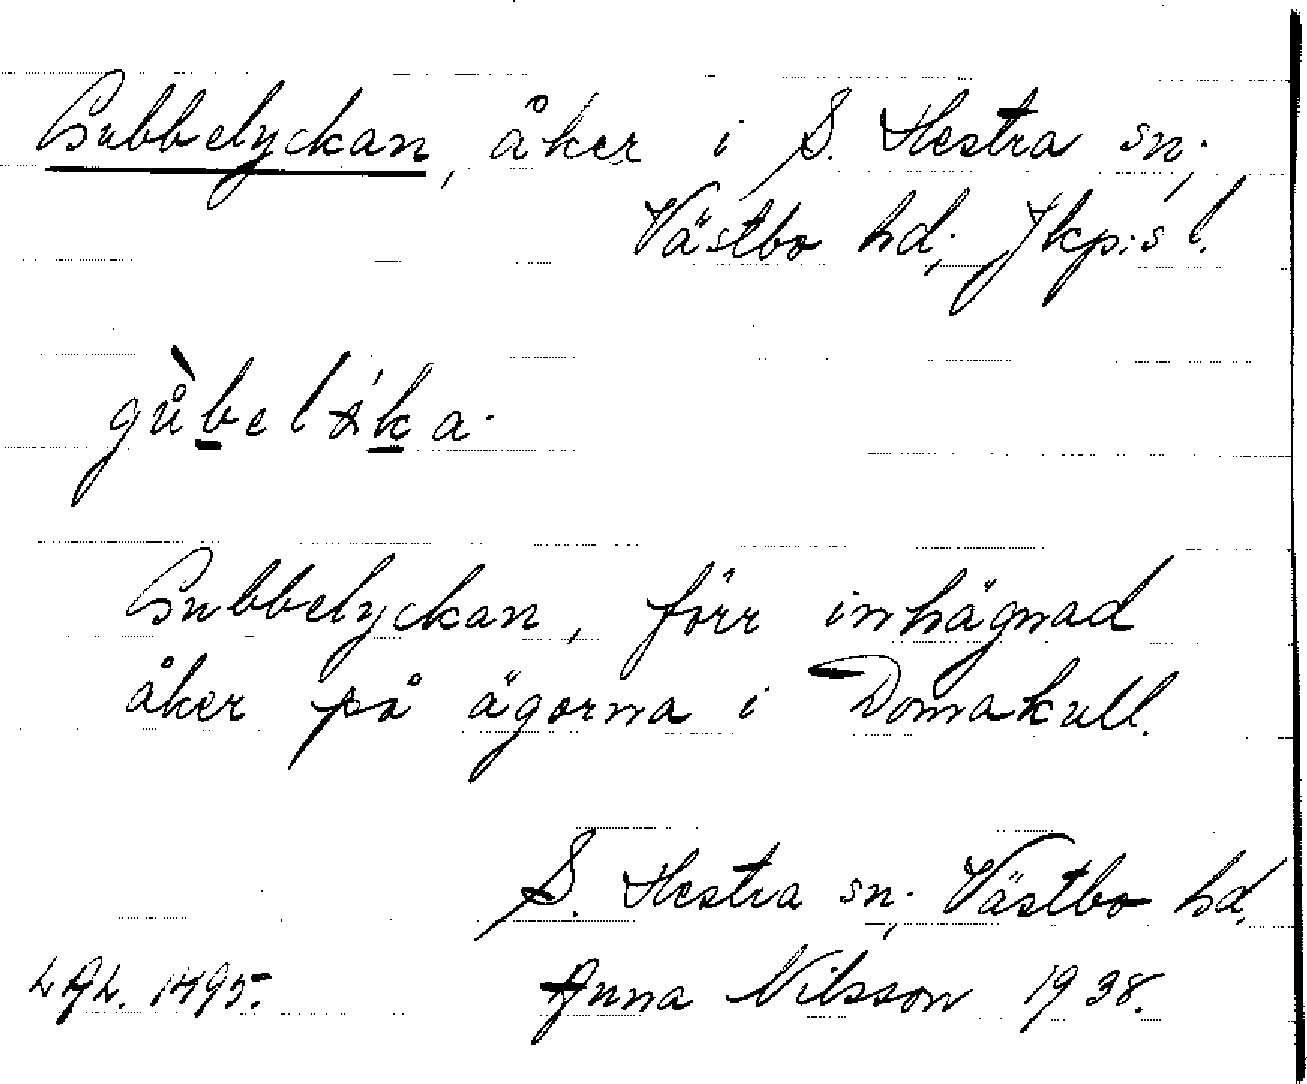 Gubbelyckan, åker i S. Hestra sn;
Västbo hd; Jkp:s l.
Gubbelyckan, förr inhägnad
åker på ägorna i Domakull.
S. Hestra sn; Västbo hd.
Anna Nilsson 1938.